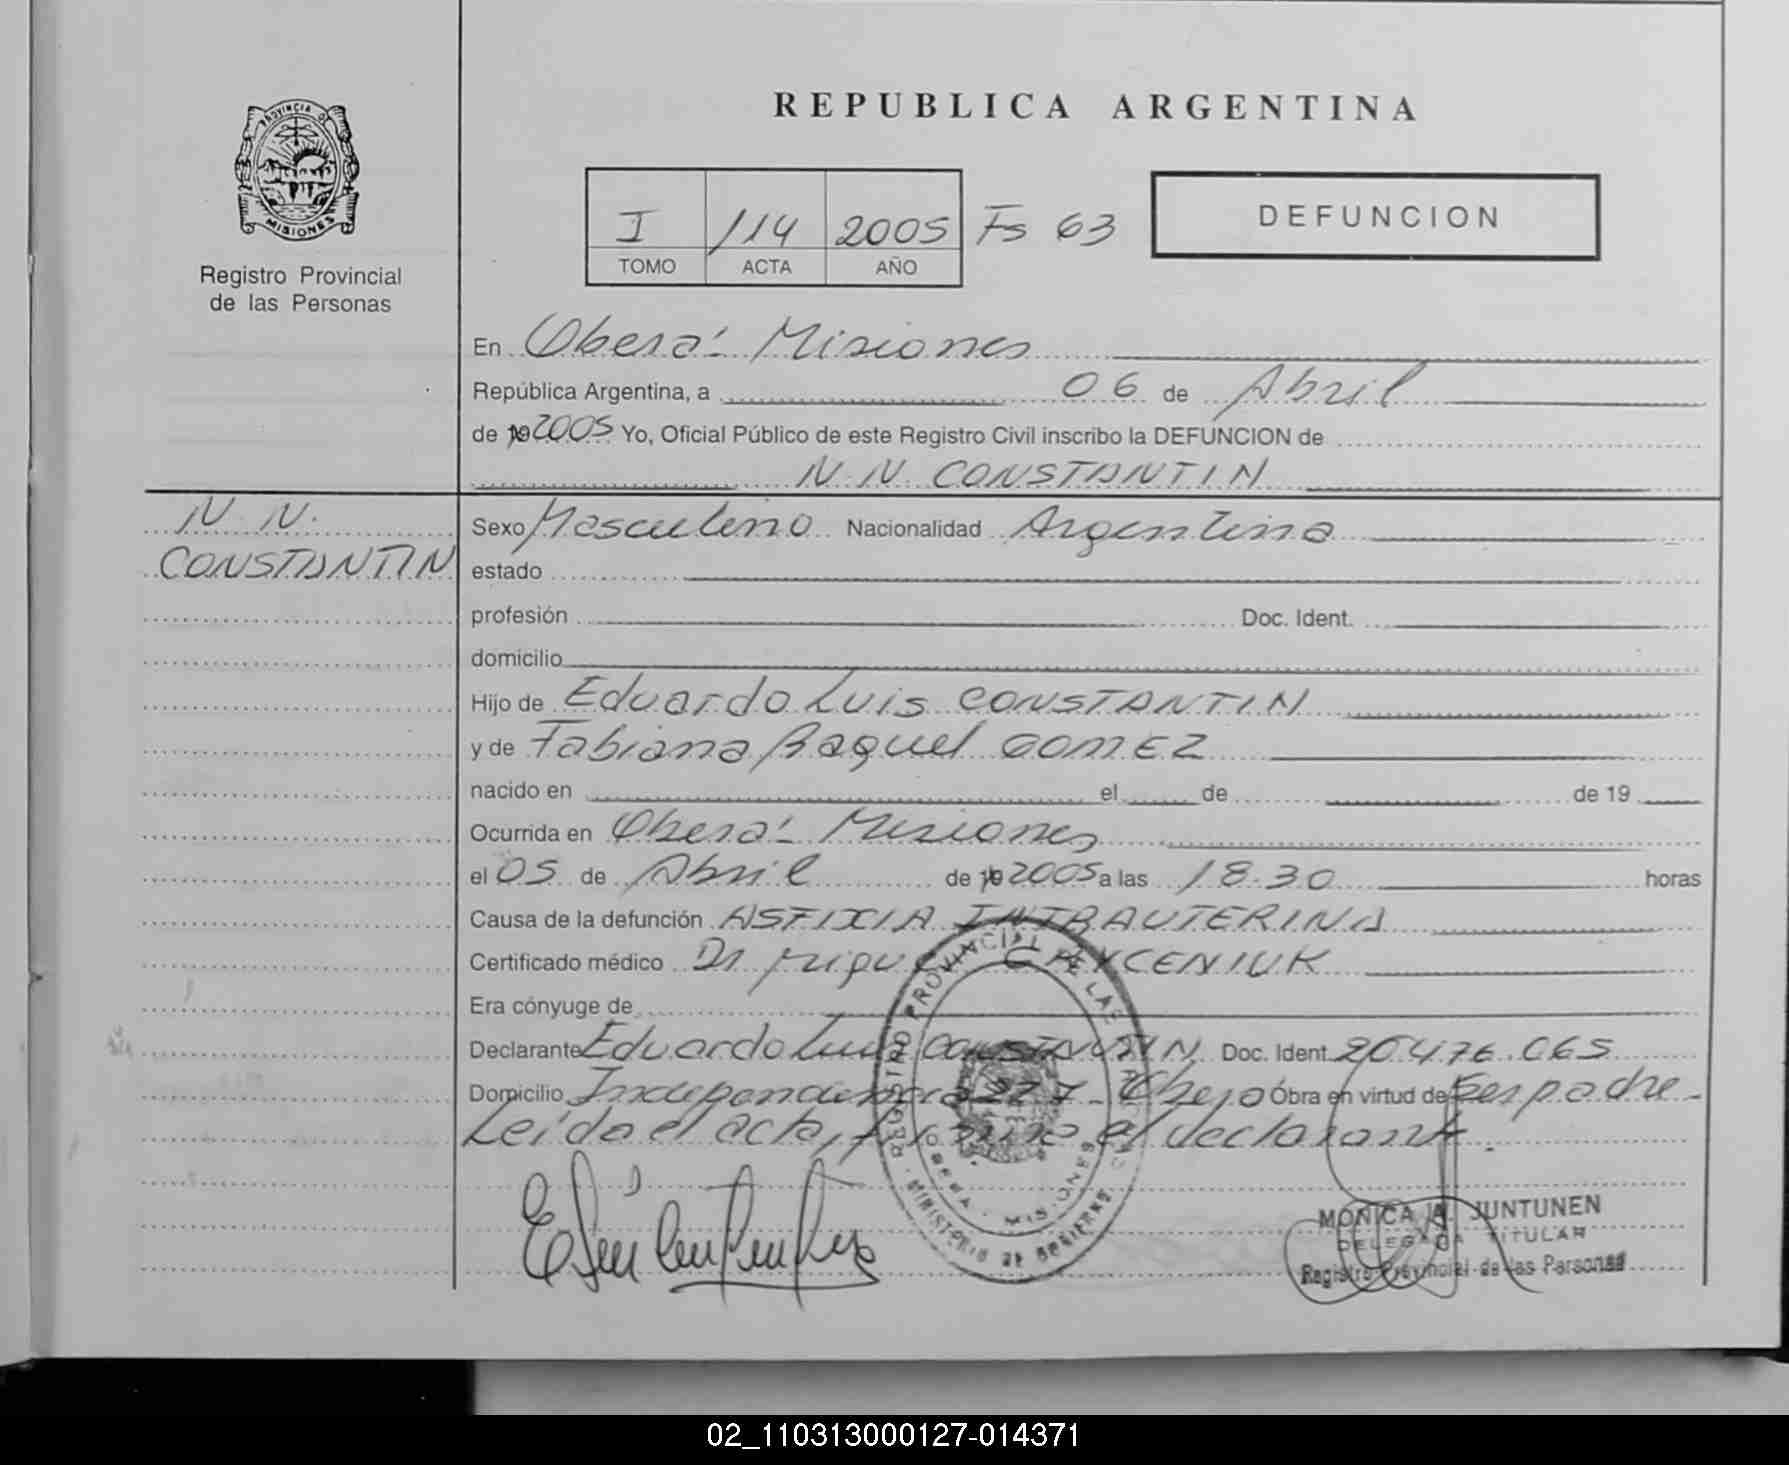 REPUBLICA ARGENTINA
PROVINCIA DE
MISIONES
Registro Provincial
de las Personas
I 114 2005 Fs 63
TOMO ACTA AÑO
DEFUNCION
En Oberá - Misiones
República Argentina, a 06 de Abril
de 19 2005 Yo, Oficial Público de este Registro Civil inscribo la DEFUNCION de
N. N. CONSTANTIN
N. N.
CONSTANTIN
Sexo Masculino Nacionalidad Argentina
estado
profesión Doc. Ident.
domicilio
Hijo de Eduardo Luis CONSTANTIN
y de Fabiana Raquel GOMEZ
nacido en el de de 19
Ocurrida en Oberá - Misiones
el 05 de Abril de 19 2005 a las 18.30 horas
Causa de la defunción ASFIXIA INTRAUTERINA
Certificado médico Dr. Miguel
Era cónyuge de
Declarante Eduardo Luis CONSTANTIN Doc. Ident. 20.476.065
Domicilio Independencia 227 - Oberá Obra en virtud de Ser padre -
Leída el acta, firma el declarante.
REGISTRO PROVINCIAL DE LAS PERSONAS
OBERA - MISIONES
MINISTERIO DE GOBIERNO
MONICA A. JUNTUNEN
DELEGADA TITULAR
Registro Provincial de las Personas
02_110313000127-014371